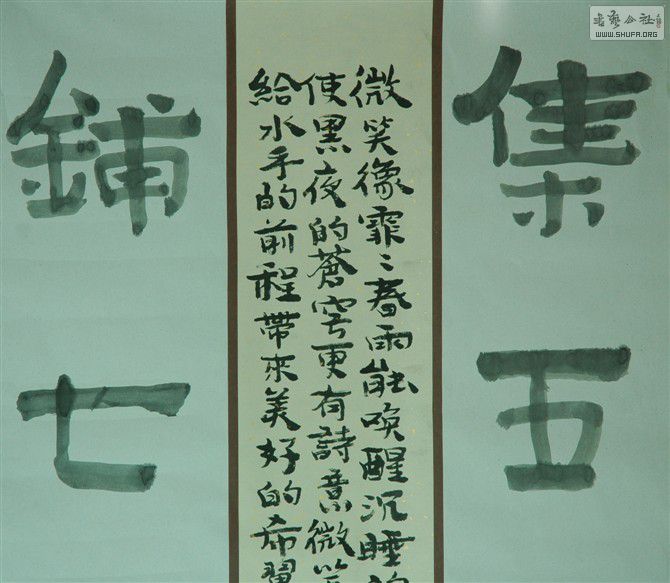 集五
微笑像霏〻春雨能唤醒沉睡
使黑夜的蒼穹更有詩意微笑
給水手的前程帶來美好的希翼
鋪七
书艺公社
WWW.SHUFA.ORG